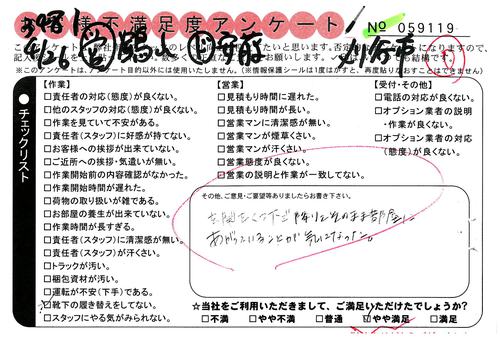 お客様不満足度アンケート
№ 059119
8/26
小谷市
※このアンケートは、アンケート目的以外には使用いたしません。(情報保護シールは1度がすと、再度貼りなおすことはできません)
●チェックリスト
【作業】
□責任者の対応(態度)が良くない。
□他のスタッフの対応(態度)が良くない。
□作業を見ていて不安がある。
□責任者(スタッフ)に好感が持てない。
□お客様への挨拶が出来ていない。
□ご近所への挨拶・気遣いが無い。
□作業開始前の内容確認がなかった。
□作業開始時間が遅れた。
□荷物の取り扱いが雑である。
□お部屋の養生が出来ていない。
□作業時間が長すぎる。
□責任者(スタッフ)に清潔感が無い。
□責任者(スタッフ)が汗くさい。
□トラックが汚い。
□梱包資材が汚い。
□運転が不安(下手)である。
□靴下の履き替えをしてない。
□スタッフにやる気が見られない。
【営業】
□見積もり時間に遅れた。
□見積もり時間が長い。
□営業マンに清潔感が無い。
□営業マンが煙草くさい。
□営業マンが汗くさい。
□営業態度が良くない。
□営業の説明と作業が一致してない。
【受付・その他】
□電話の対応が良くない。
□オプション業者の説明・作業が良くない。
□オプション業者の対応(態度)が良くない。
その他、ご意見・ご要望等ありましたらお書き下さい。
あがっていることが気になった。
☆当社をご利用いただきまして、ご満足いただけたでしょうか?
□不満 □やや不満 □普通 □やや満足 □満足